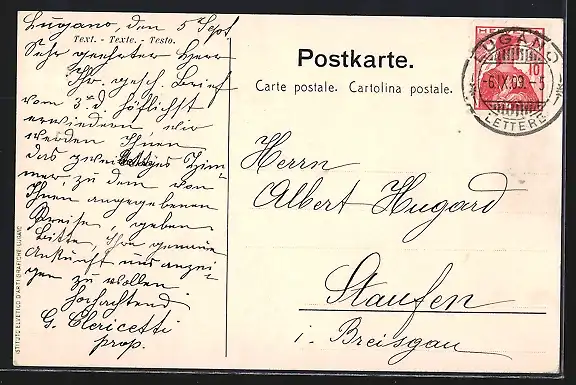 Lugano, den 5 Sept.
Text. - Texte. - Testo.
Sehr geehrter Herr
Ihr. gesch. Brief
vom 3.d. höflichst
erwiedern, wir
werden Ihnen
das zweibettiges Zim-
mer, zu dem von
Ihnen angegebenen
Preise, geben.
Bitte, Ihre genaue
Ankunft uns anzei-
gen zu wollen
Hochachtend
G. Clericetti
prop.
ISTITUTO ELVETICO D'ARTI GRAFICHE LUGANO
Postkarte.
Carte postale. Cartolina postale.
HELVETIA
10
LUGANO
6.IX.09. - 5
LETTERE
Herrn
Albert Hugard
Staufen
i. Breisgau